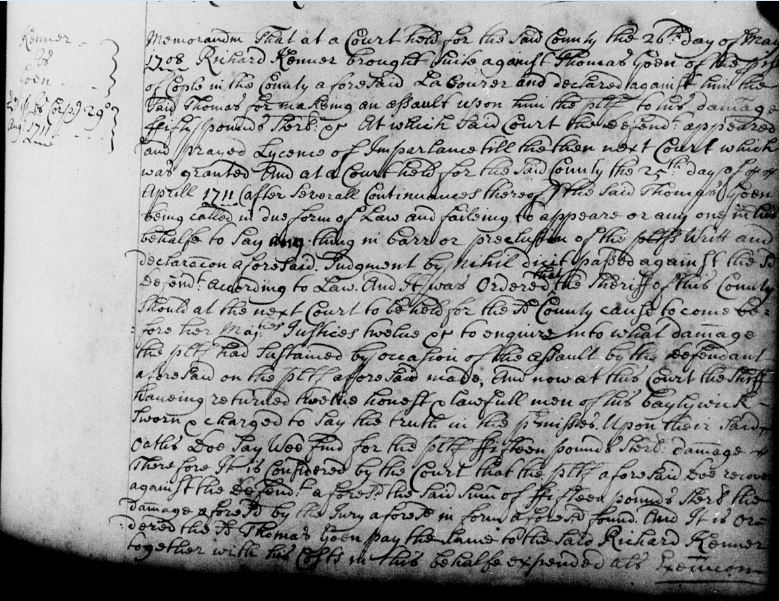 Kenner
vs
Goen
Memorandm That at a Court held for the Said County the 26th day of May
1708 Richard Kenner brought Suite against Thomas Goen of the
of Cople in the County aforesaid Labourer and declared against him the
Said Thomas for makeing an assault upon him the pltf to his damage
fifty pounds Sterl: &c At which Said Court the defendt: appeared
and prayed Lycence of Imparlance till the then next Court which
was granted And at a Court held for the said County the 25th day of
Aprill 1711 (after Severall Continuances thereof) the Said Thomas Goen
being called in due form of Law and faileing to appeare or any one in his
behalfe to Say any thing in barr or preclusion of the pltfs Writt and
declaracon aforesaid. Judgment by nihil dicit passed against the Sd
defendt: according to Law. And It was Ordered that the Sheriff of this County
Should at the next Court to be held for the Sd County cause to come be-
fore her Majties Justices twelve &c to enquire into what damage
the pltf had Sustained by occasion of the assault by the defendant
aforesaid on the pltf aforesaid made, And now at this Court the Shff
haveing returned twelve honest & lawfull men of his baylywick
Sworn & charged to Say the truth in the pmisses. Upon their Said
Oaths Doe Say Wee find for the pltf fifteen pounds Sterl: damage
Therefore It is Considered by the Court that the pltf aforesaid Doe recover
against the Defendt: aforesd the Said Sum of fifteen pounds Sterl the
damage aforesd by the Jury aforesd in form aforesd found. And It is Or-
dered the Sd Thomas Goen pay the Same to the Said Richard Kenner
together with his Costs in this behalfe expended als Execucon